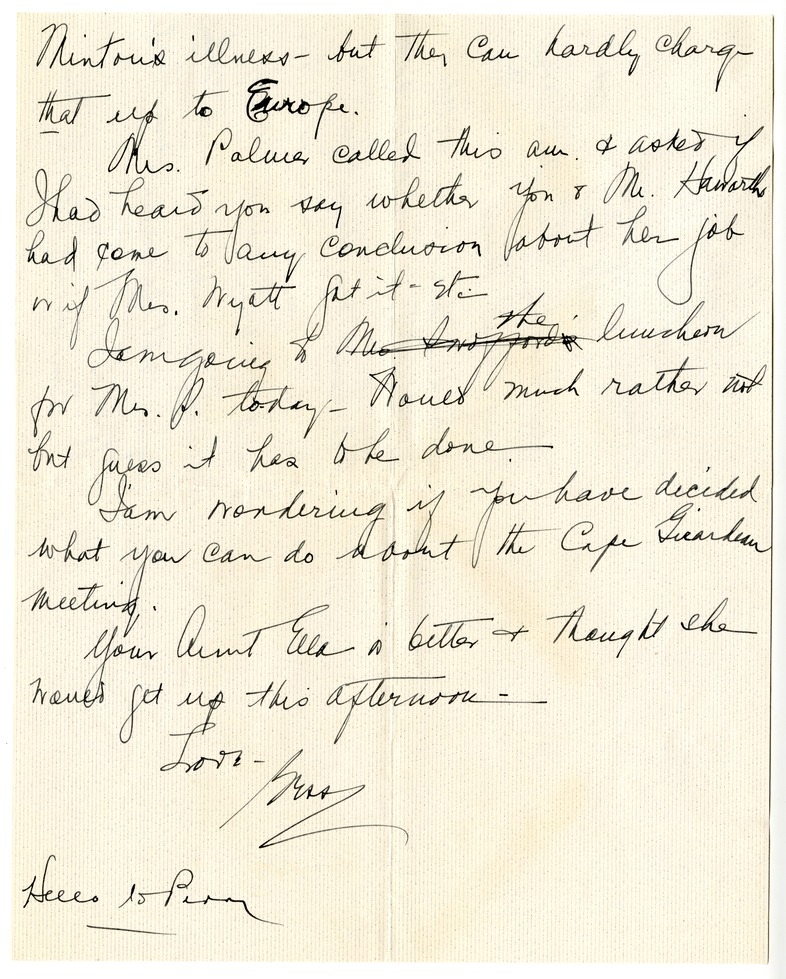 Minton's illness - but they can hardly charge
that up to Europe.
Mrs. Palmer called this a.m. & asked if
I had heard you say whether you & Mr. Haworth
had come to any conclusion about her job
or if Mrs. Wyatt got it - etc
I am going to the luncheon
for Mrs. P. to-day - Would much rather not
but guess it has to be done
I am wondering if you have decided
what you can do about the Cape Girardeau
meeting.
Your Aunt Ella is better & thought she
would get up this afternoon -
Love -
Bess
Hello to Perry